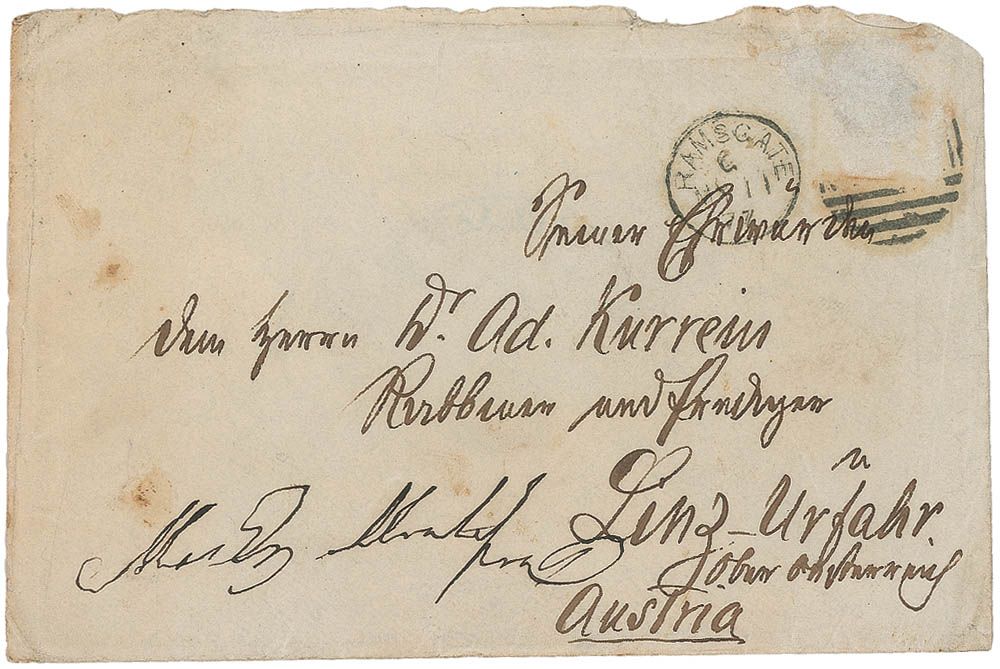 RAMSGATE
Seiner Ehrwürden
dem Herrn Dr. Ad. Kurrein
Rabbiner und Prediger
Linz-Urfahr.
Ober Oesterreich
Austria